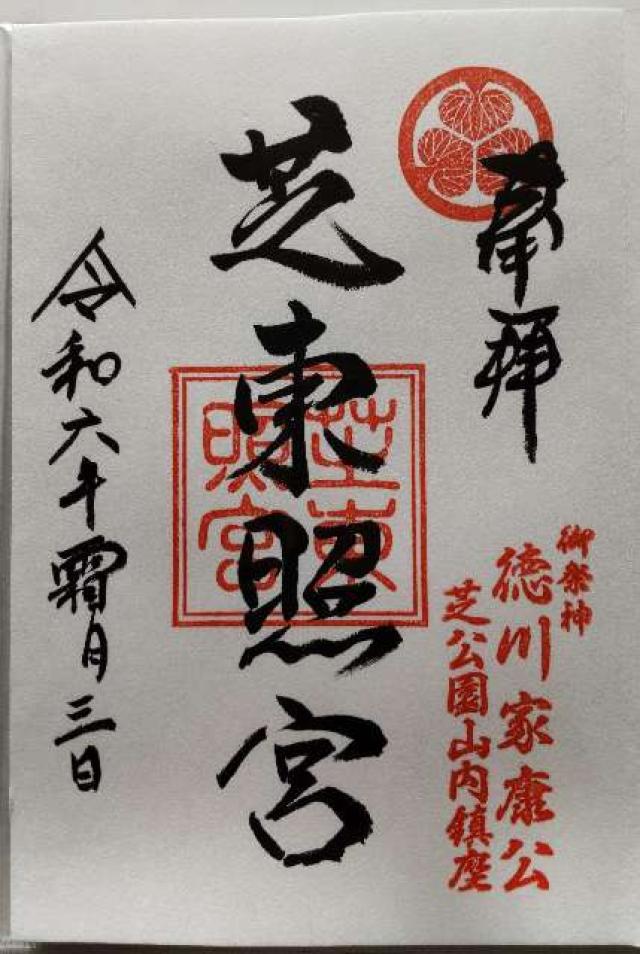 奉拝
御祭神
徳川家康公
芝公園山内鎮座
芝東照宮
芝東
照宮
令和六年霜月三日